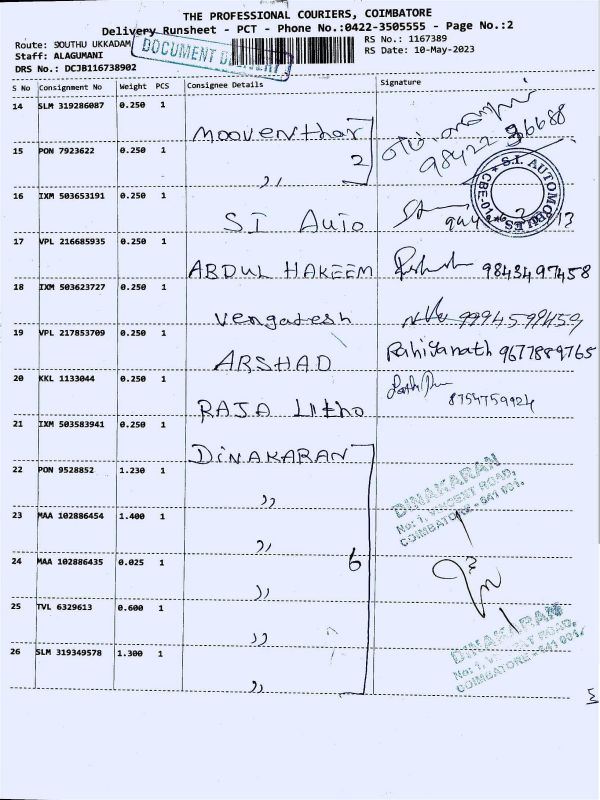 THE PROFESSIONAL COURIERS, COIMBATORE
Delivery Runsheet - PCT - Phone No.:0422-3505555 - Page No.:2
Route: SOUTHU UKKADAM
RS No.: 1167389
Staff: ALAGUMANI
RS Date: 10-May-2023
DRS No.: DCJB116738902
DOCUMENT
S No Consignment No Weight PCS Consignee Details Signature
14 SLM 319286087 0.250 1
Mooventhar
98422 36688
15 PON 7923622 0.250 1
2
,,
S.I. AUTOMOBILES
CBE-01
16 IXM 503653191 0.250 1
S I Auto
17 VPL 216685935 0.250 1
ABDUL HAKEEM 9843497458
18 IXM 503623727 0.250 1
Vengatesh 9994599459
19 VPL 217853709 0.250 1
ARSHAD Rahiyanath 9677889765
20 KKL 1133044 0.250 1
RAJA Litho 8754759924
21 IXM 503583941 0.250 1
DINAKARAN
22 PON 9528852 1.230 1
,,
DINAKARAN
No: 1, VINCENT ROAD,
COIMBATORE - 641 001.
23 MAA 102886454 1.400 1
,,
24 MAA 102886435 0.025 1
6
,,
25 TVL 6329613 0.600 1
,,
DINAKARAN
No: 1, ROAD,
COIMBATORE - 641 001.
26 SLM 319349578 1.300 1
,,